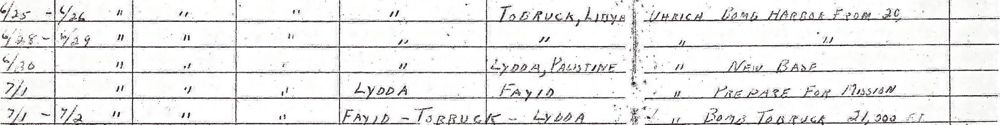 6/25 - 6/26 " " " " TOBRUCK, LIBYA UHRICH BOMB HARBOR FROM 20,
6/28 - 6/29 " " " " " " "
6/30 " " " " LYDDA, PALISTINE " NEW BASE
7/1 " " " LYDDA FAYID " PREPARE FOR MISSION
7/1 - 7/2 " " " FAYID - TOBRUCK - LYDDA " BOMB TOBRUCK 21,000 FT